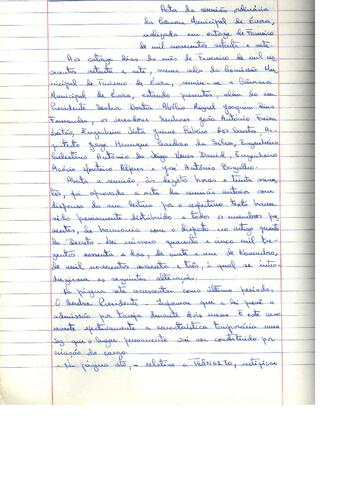 Acta da reunião ordinária
da Câmara Municipal de Évora,
realizada em catorze de Fevereiro
de mil novecentos setenta e sete.
Aos catorze dias do mês de Fevereiro de mil no-
vecentos setenta e sete, numa sala da Comissão Mu-
nicipal de Turismo de Évora, reuniu a Câmara
Municipal de Évora, estando presentes, além do seu
Presidente Senhor Doutor Abílio Miguel Joaquim Dias
Fernandes, os vereadores Senhores João António
Engenheiro Jaime dos Santos, Ar-
quitecto Jorge Henrique da Silva, Engenheiro
António David, Engenheiro
Acácio Monteiro e José António
Aberta a reunião, às dezoito horas e trinta minu-
tos, foi aprovada a acta da reunião anterior com
dispensa da sua leitura por o respectivo texto haver
sido previamente distribuído a todos os membros pre-
sentes, de harmonia com o disposto no artigo quarto
do Decreto-Lei número quarenta e cinco mil tre-
zentos sessenta e dois, de vinte e um de Novembro,
de mil novecentos sessenta e três, à qual se intro-
duziram as seguintes alterações:
Na página sete acrescentar como último período:
O Senhor Presidente - Sugerou que a lei prevê a
admissão por tarefa durante dois meses. É este caso
reveste efectivamente a característica temporária uma
vez que o lugar permanente vai ser constituído por
criação do cargo.
- Na página oito, - relativo a TRÂNSITO, rectificar